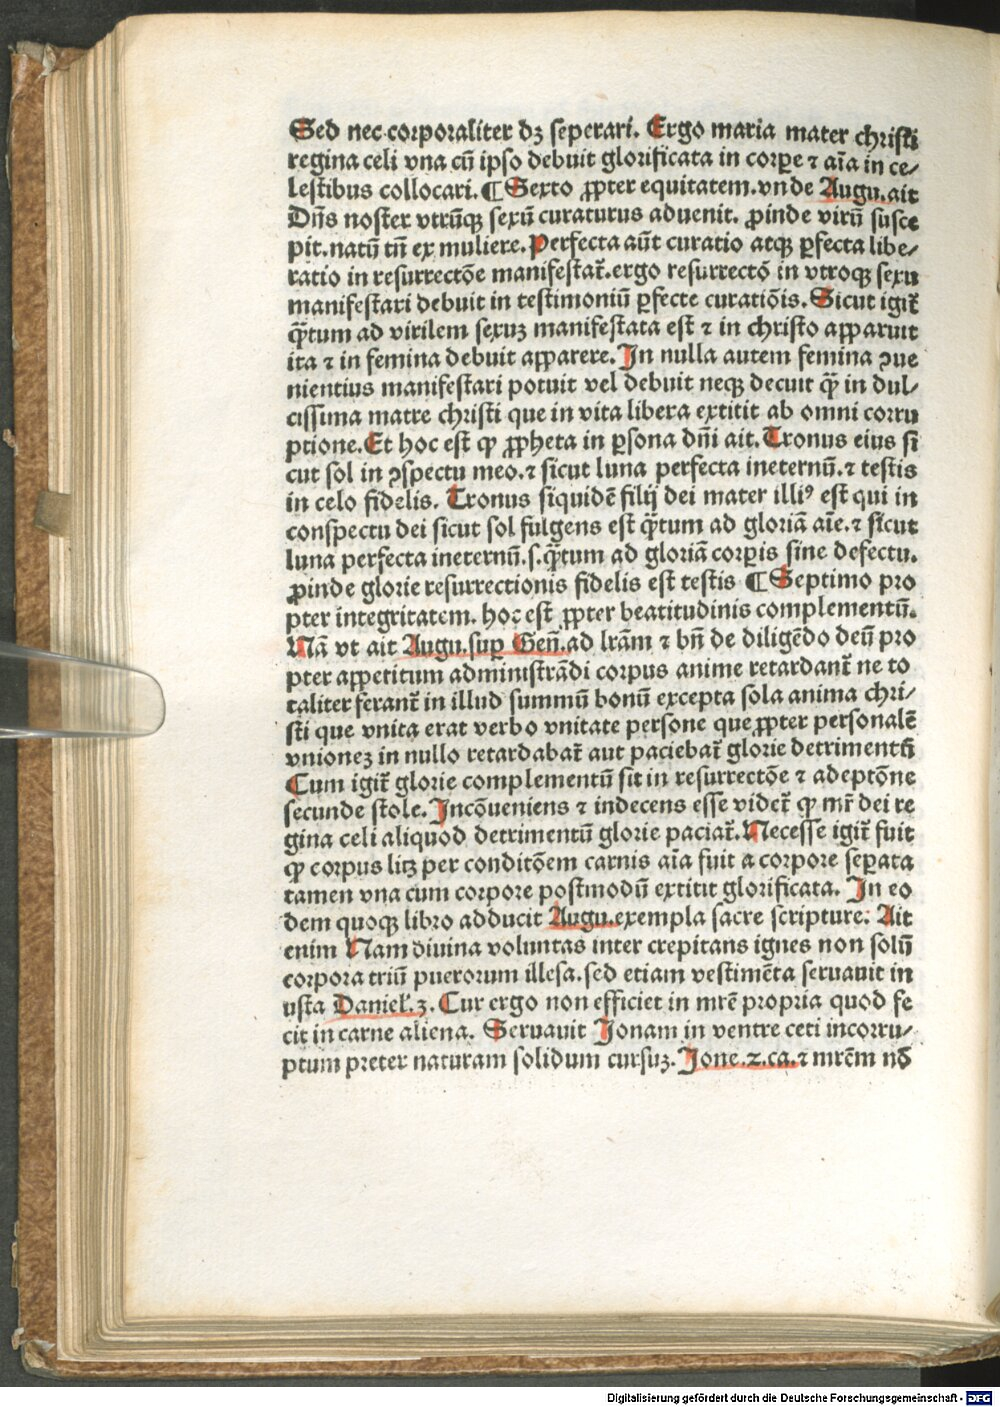 Sed nec corporaliter dꝫ seperari. Ergo maria mater christi
regina celi vna cū ipso debuit glorificata in corꝑe ⁊ aīa in ce⸗
lestibus collocari. ¶ Sexto ꝓpter equitatem. vnde Augu. ait
Dn̄s noster vtrūqꝫ sexū curaturus aduenit. ꝓinde virū susce
pit. natū tn̄ ex muliere. Perfecta aūt curatio atqꝫ ꝑfecta libe⸗
ratio in resurrectōe manifestat̄. ergo resurrectō in vtroqꝫ sexu
manifestari debuit in testimoniū ꝑfecte curatiōis. Sicut igit̄
qͣ̄tum ad virilem sexuꝫ manifestata est ⁊ in christo apparuit
ita ⁊ in femina debuit apparere. In nulla autem femina ꝯue
nientius manifestari potuit vel debuit neqꝫ decuit qͣ̄ in dul⸗
cissima matre christi que in vita libera extitit ab omni corru
ptione. Et hoc est ꝙ ꝓpheta in ꝑsona dn̄i ait. Tronus eius si
cut sol in ꝯspectu meo. ⁊ sicut luna perfecta ineternū. ⁊ testis
in celo fidelis. Tronus siquidē filij dei mater illiꝰ est qui in
conspectu dei sicut sol fulgens est qͣ̄tum ad gloriā aīe. ⁊ sicut
luna perfecta ineternū. s. qͣ̄tum ad gloriā corꝑis sine defectu.
ꝓinde glorie resurrectionis fidelis est testis ¶ Septimo pro
pter integritatem. hoc est ꝓpter beatitudinis complementū.
Nā vt ait Augu. suꝑ Gen̄. ad lr̄am ⁊ bn̄ de diligēdo deū pro
pter appetitum administrādi corpus anime retardant̄ ne to
taliter ferant̄ in illud summū bonū excepta sola anima chri⸗
sti que vnita erat verbo vnitate persone que ꝓpter personalē
vnioneꝫ in nullo retardabat̄ aut paciebat̄ glorie detrimentū
Cum igit̄ glorie complementū sit in resurrectōe ⁊ adeptōne
secunde stole. Incōueniens ⁊ indecens esse videt̄ ꝙ mr̄ dei re
gina celi aliquod detrimentū glorie paciat̄. Necesse igit̄ fuit
ꝙ corpus litꝫ per conditōem carnis aīa fuit a corpore seꝑata
tamen vna cum corpore postmodū extitit glorificata. In eo
dem quoqꝫ libro adducit Augu. exempla sacre scripture: Ait
enim Nam diuina voluntas inter crepitans ignes non solū
corpora triū puerorum illesa. sed etiam vestimēta seruauit in
usta Daniel̄. 3. Cur ergo non efficiet in mr̄e propria quod fe
cit in carne aliena. Seruauit Jonam in ventre ceti incorru⸗
ptum preter naturam solidum cursuꝫ. Jone. 2. ca. ⁊ mr̄em nō
Digitalisierung gefördert durch die Deutsche Forschungsgemeinschaft - DFG